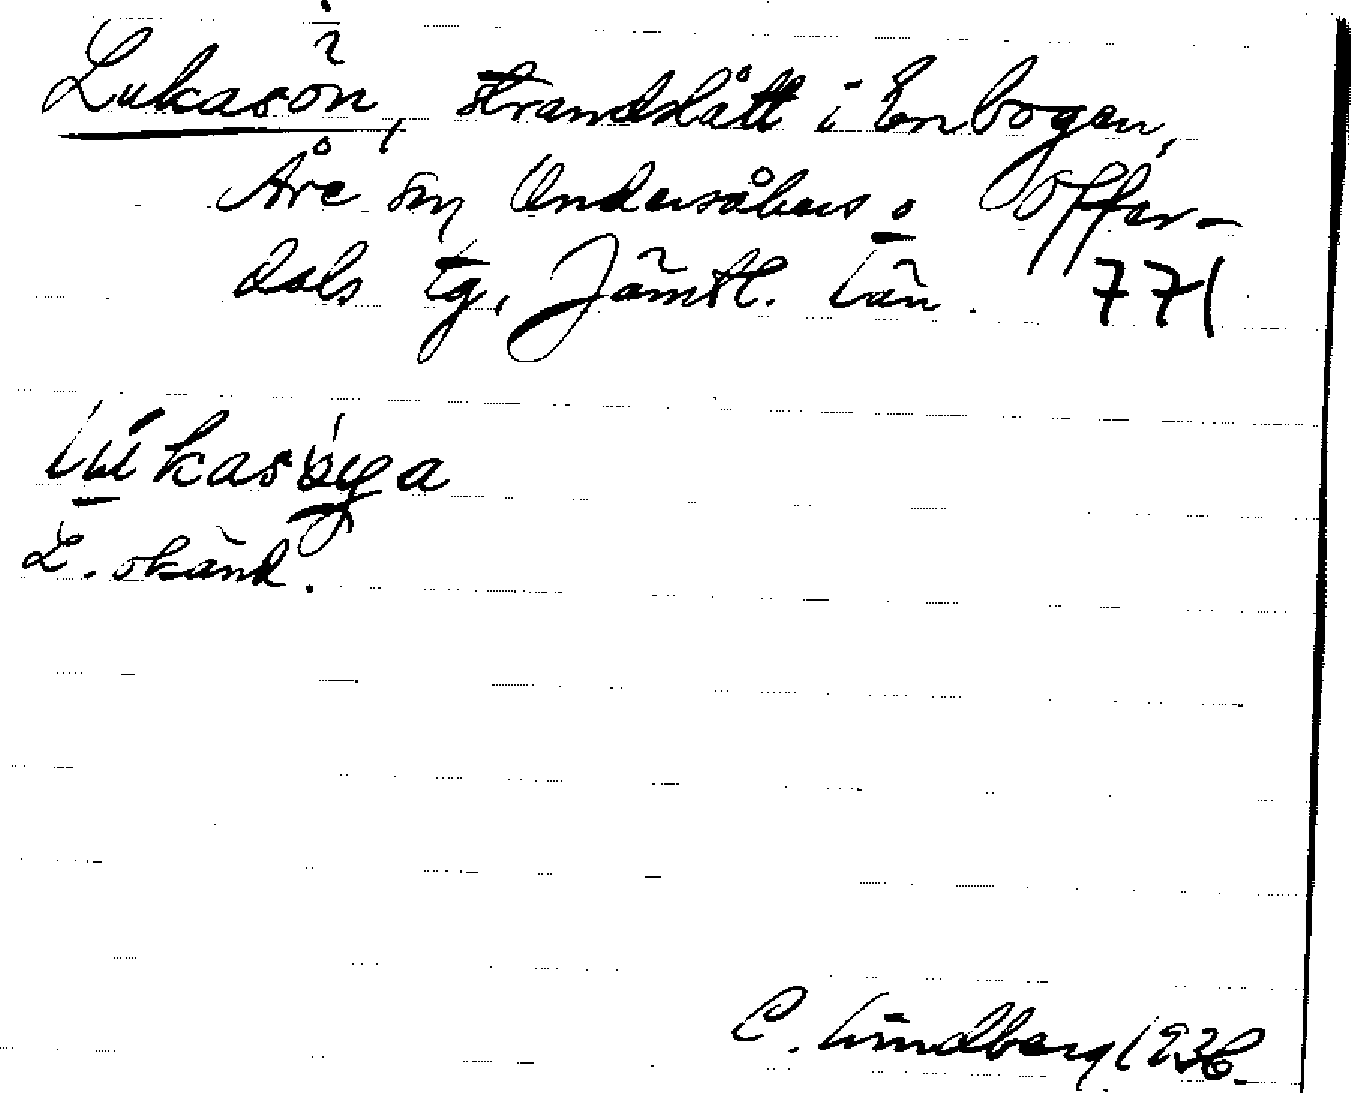 Lukasön, strandslått i Enbogen,
Åre sn, Undersåkers o Offer-
dals tg, Jämtl. län. 771
L. okänd.
C. Lindberg 1936.